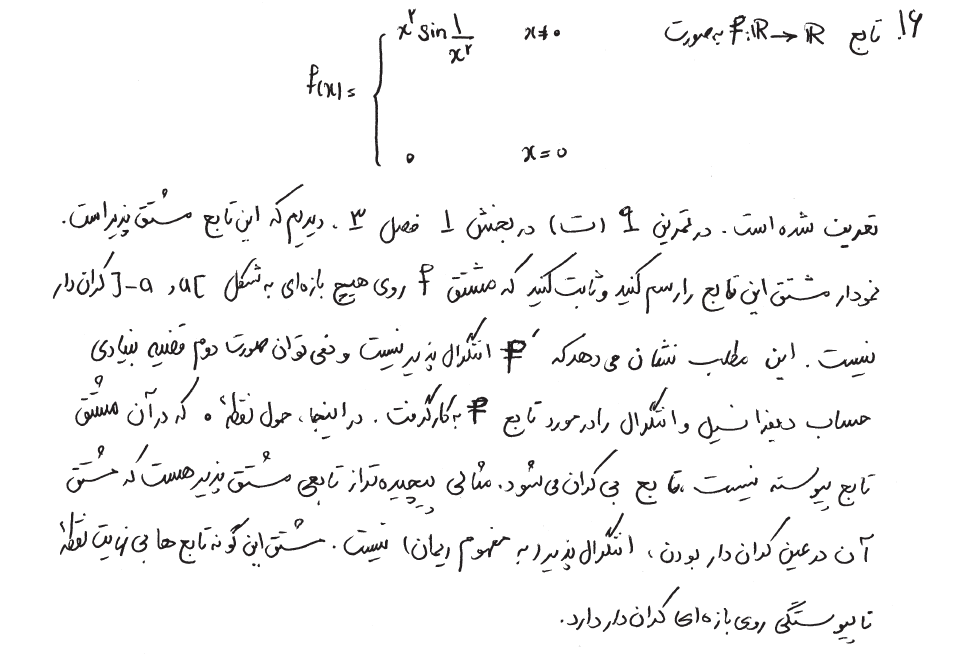 ۱۶. تابع f:ℝ→ℝ به صورت
f(x) = { x² sin 1/x²   x≠0
0   x=0
تعریف شده است. در تمرین ۹ (ت) در بخش ۱ فصل ۳، دیدیم که این تابع مشتق پذیر است.
نمودار مشتق این تابع را رسم کنید و ثابت کنید که مشتق f روی هیچ بازه‌ای به شکل ]-a, a[ کران دار
نیست. این مطلب نشان می دهد که f′ انتگرال پذیر نیست و نمی توان صورت دوم قضیه بنیادی
حساب دیفرانسیل و انتگرال را در مورد تابع f به کار گرفت. در اینجا، حول نقطهٔ ۰ که در آن مشتق
تابع پیوسته نیست، تابع بی کران می شود. مثالی پیچیده تر از تابعی مشتق پذیر هست که مشتق
آن در عین کران دار بودن، انتگرال پذیر (به مفهوم ریمان) نیست. مشتق این گونه تابع ها بی نهایت نقطهٔ
ناپیوستگی روی بازه ای کران دار دارد.